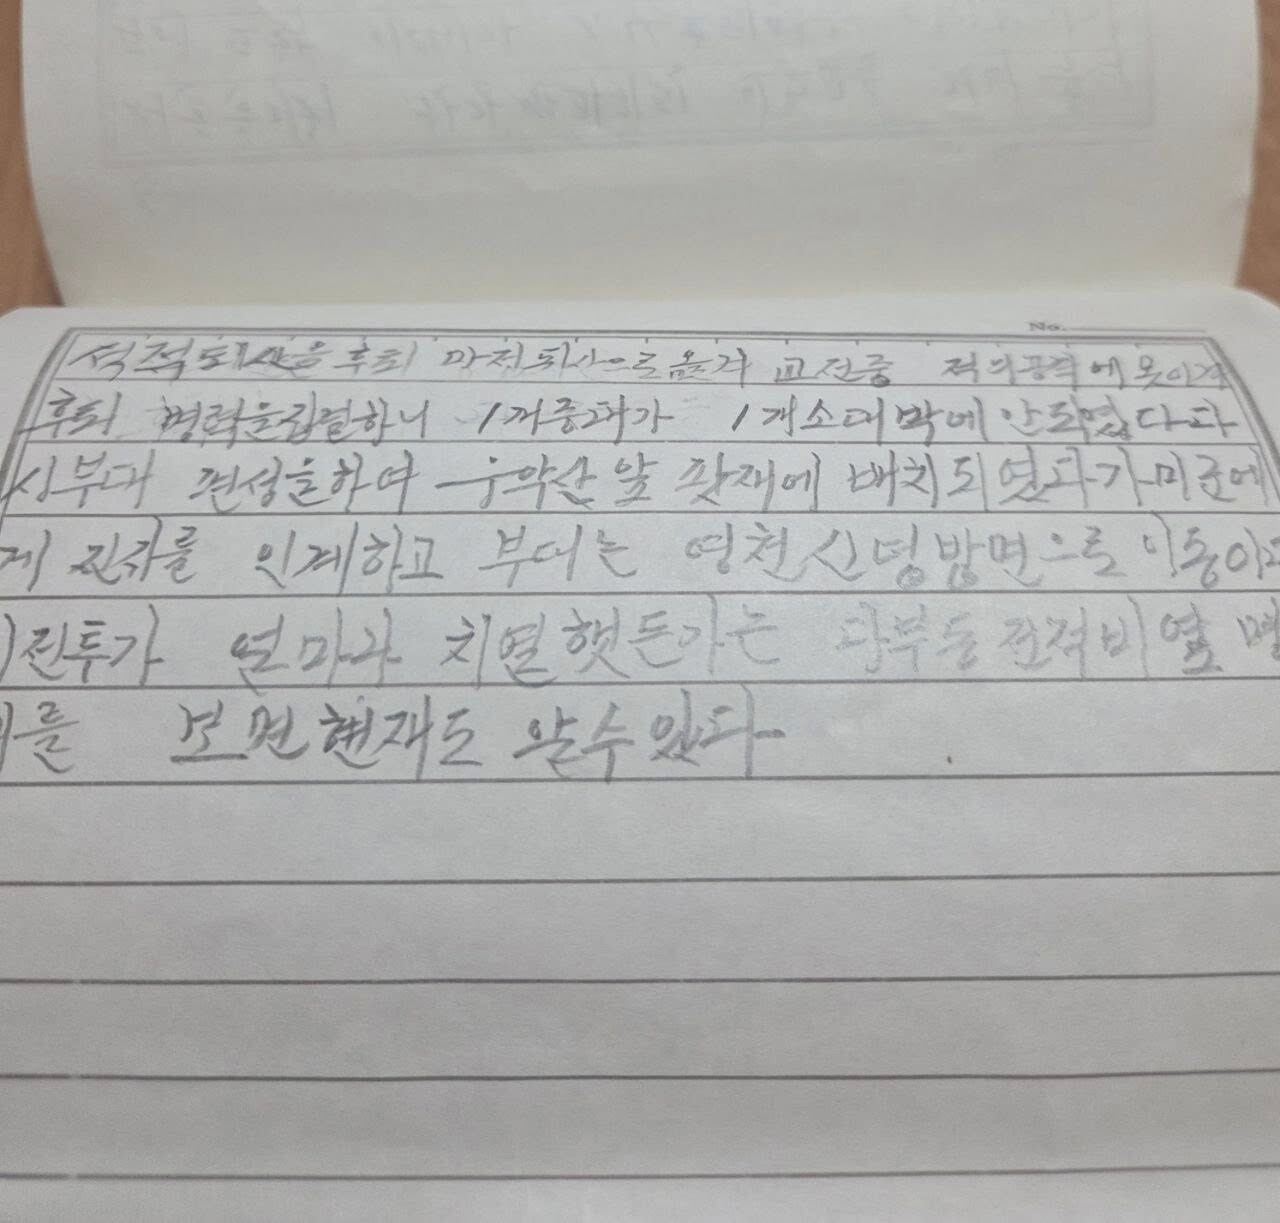 No.
석적퇴산을 후퇴 마진퇴산으로 옴겨 교전중 적의공격에 못이겨
후퇴 병력을집결하니 1개중대가 1개소대 박에 안되엿다 다
시부대 편성을하여 앞 팟재에 배치되엿다가 미군에
게 진지를 인계하고 부대는 영천 신녕방면으로 이동
전투가 얼마나 치열햇든가는 다부동 전적비 옆
를 보면 현재도 알수있다